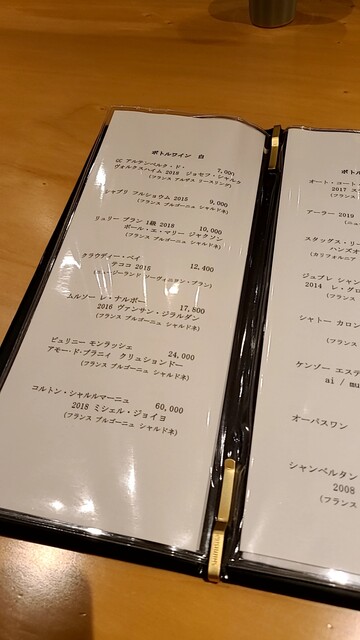 ボトルワイン 白
GC アルテンベルク・ド・ 7,000
ヴォルクスハイム 2016 ジョセフ・シャルコ
(フランス アルザス リースリング)
シャブリ フルショウム 2015 9,000
(フランス ブルゴーニュ シャルドネ)
リュリー ブラン 1級 2018 10,000
ポール・エ・マリー ジャクソン
(フランス ブルゴーニュ シャルドネ)
クラウディー・ベイ 12,400
テココ 2015
ソーヴィニヨン・ブラン)
ムルソー レ・ナルボー 17,800
2016 ヴァンサン・ジラルダン
(フランス ブルゴーニュ シャルドネ)
ピュリニー モンラッシェ 24,000
アモー・ド・ブラニィ クリュションドー
(フランス ブルゴーニュ シャルドネ)
コルトン・シャルルマーニュ 60,000
2018 ミシェル・ジョイヨ
(フランス ブルゴーニュ シャルドネ)
ボトル
オート・コート・
2017 ス
(フランス
アーラー 2019
(ニュ
スタッグス・リー
ヘンズオ
(カリフォルニア
ジュブレ シャン
2014 レ・グロ
(フランス
シャトー カロン
(フラン
ケンゾー エステ
ai / mu
オーパスワン
シャンベルタン
2008
(フランス